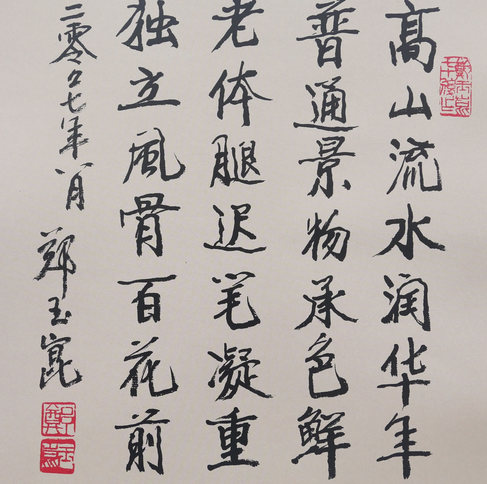 高山流水润华年
普通景物承色鲜
老体腿迟笔凝重
独立風骨百花前
二零〇七年八月 郑玉崑